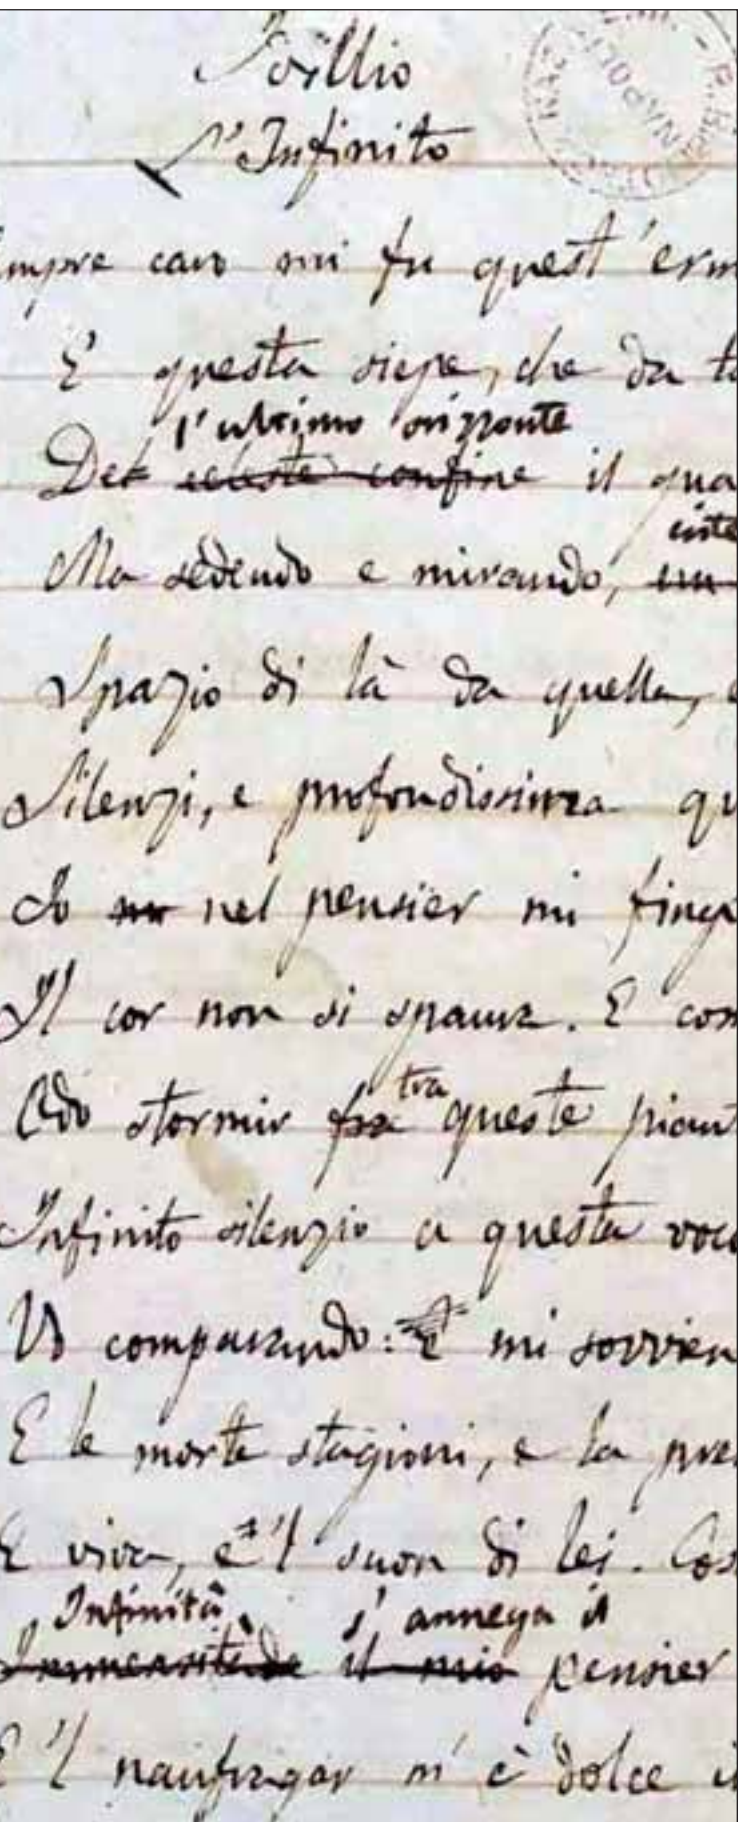 Idillio
L'Infinito
NAPOLI
mpre caro mi fu quest'erm
E questa siepe, che da ta
l'ultimo orizzonte
Del celeste confine il gua
inte
Ma sedendo e mirando, un
Spazio di là da quella, e
Silenzi, e profondissima qu
Io mi nel pensier mi fingo
Il cor non si spaura. E com
tra
Odo stormir fra queste piant
Infinito silenzio a questa voce
Vo comparando: e mi sovvien
E le morte stagioni, e la pres
E viva, e 'l suon di lei. Cos
Infinità s'annega il
Immensitade il mio pensier
E 'l naufragar m'è dolce i